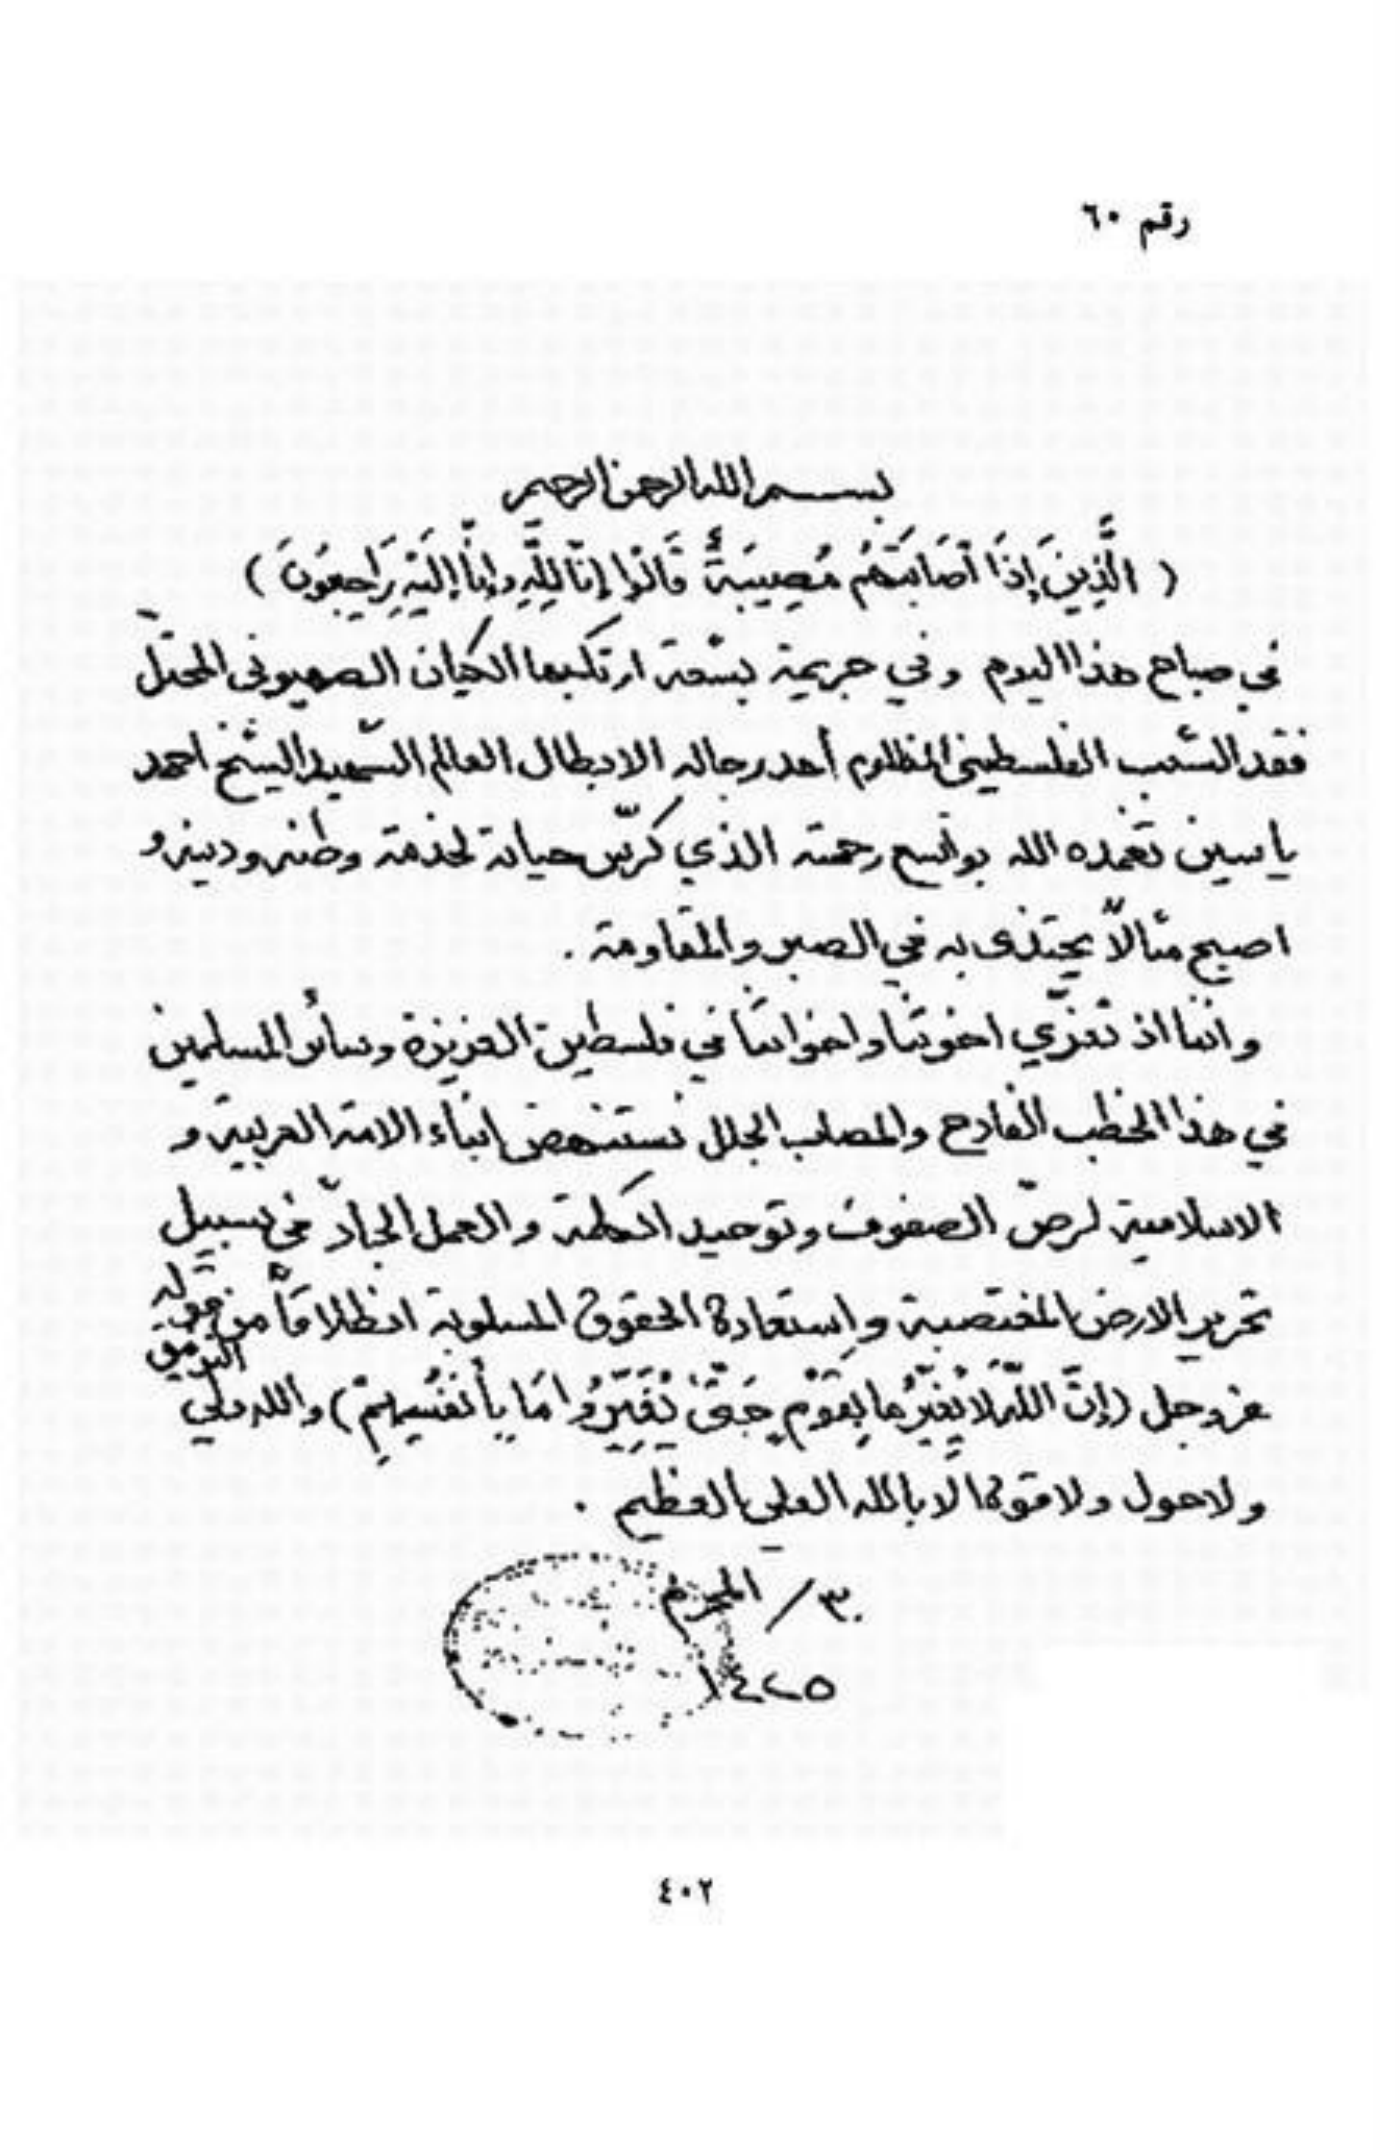 رقم ٦٠
بسم الله الرحمن الرحيم
( الَّذِينَ إِذَا أَصَابَتْهُمْ مُصِيبَةٌ قَالُوا إِنَّا لِلَّهِ وَإِنَّا إِلَيْهِ رَاجِعُونَ )
في صباح هذا اليوم وفي جريمة بشعة ارتكبها الكيان الصهيوني المحتلّ
فقد الشعب الفلسطيني المظلوم أحد رجاله الابطال العالم الشهيد الشيخ احمد
ياسين تغمده الله بواسع رحمته الذي كرّس حياته لخدمة وطنه ودينه و
اصبح مثالاً يحتذى به في الصبر والمقاومة .
واننا اذ نعزّي اخوتنا واخواتنا في فلسطين العزيزة وسائر المسلمين
في هذا الخطب الفادح والمصاب الجلل نستنهض ابناء الامة العربية و
الاسلامية لرصّ الصفوف وتوحيد الكلمة والعمل الجادّ في سبيل
تحرير الارض المغتصبة واستعادة الحقوق المسلوبة انطلاقاً من قوله
عز وجل (إِنَّ اللَّهَ لَا يُغَيِّرُ مَا بِقَوْمٍ حَتَّىٰ يُغَيِّرُوا مَا بِأَنفُسِهِمْ) والله ولي التوفيق
ولا حول ولا قوة الا بالله العلي العظيم .
٣٠ / المحرم
١٤٢٥
٤٠٢